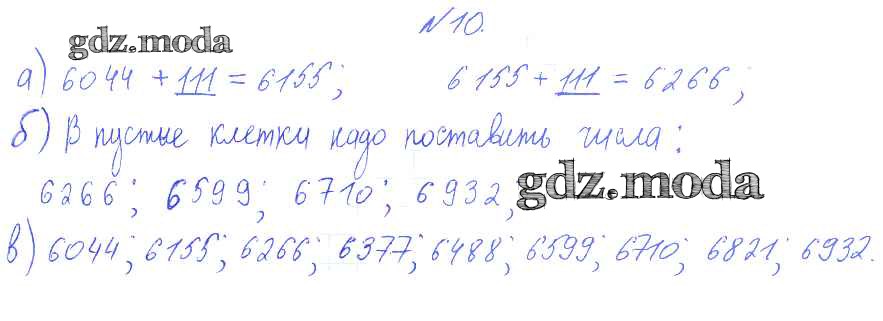 №10.
gdz.moda
а) 6044 + 111 = 6155; 6155 + 111 = 6266;
б) В пустые клетки надо поставить числа:
6266; 6599; 6710; 6932, gdz.moda
в) 6044; 6155; 6266; 6377; 6488; 6599; 6710; 6821; 6932.